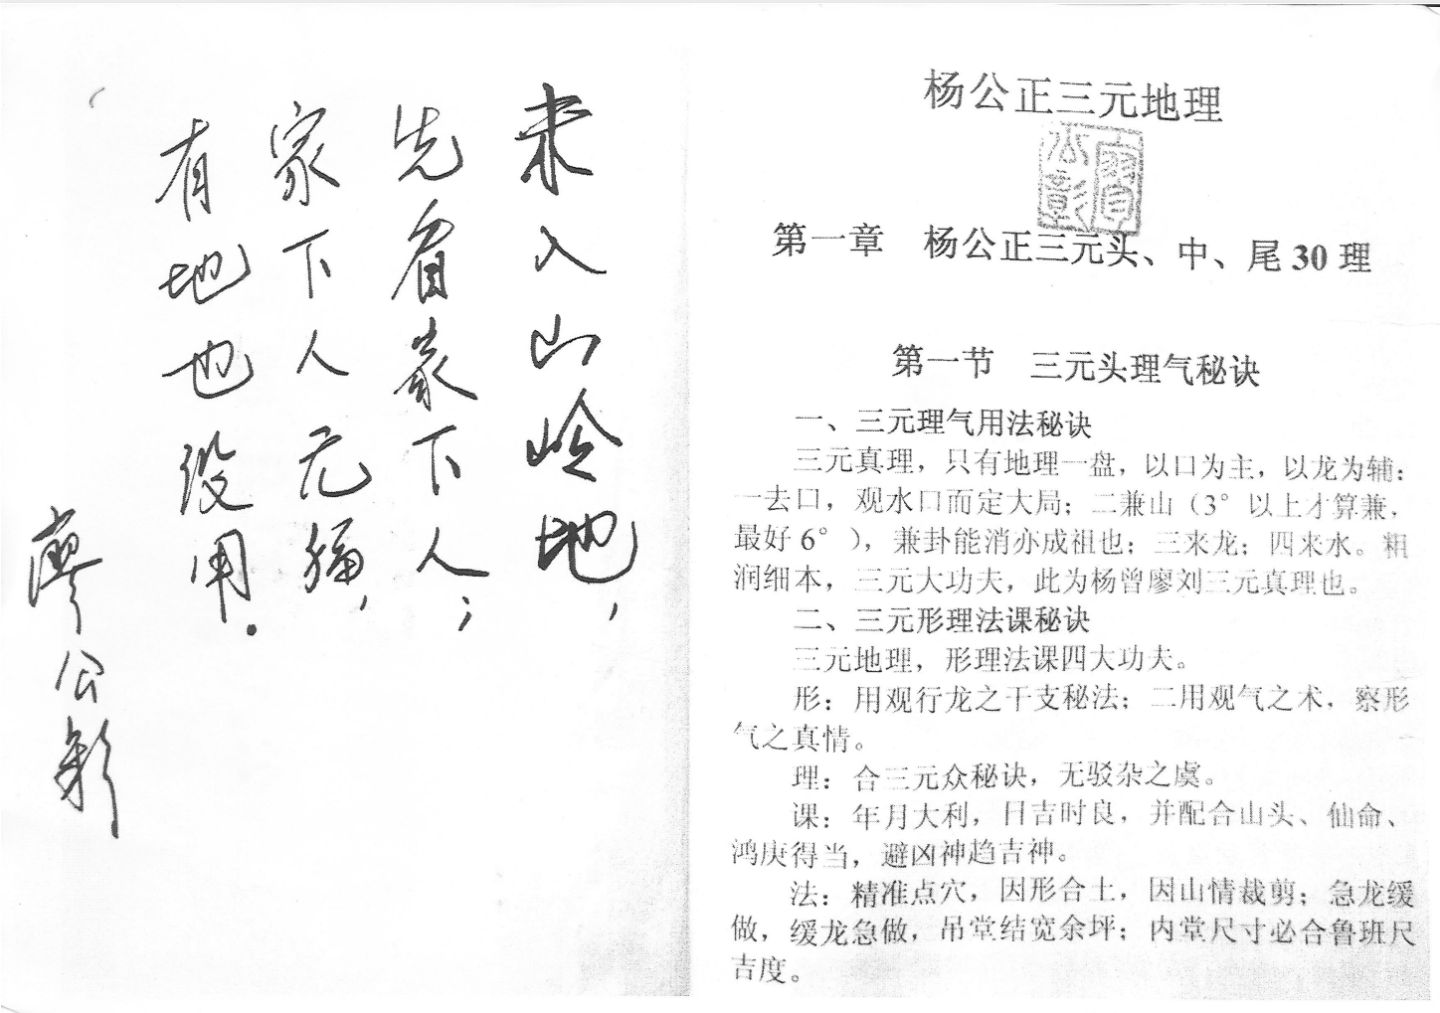 未入山岭地，
先看家下人；
家下人无福，
有地也没用.
廖公彰
杨公正三元地理
廖公彰
第一章 杨公正三元头、中、尾30理
第一节 三元头理气秘诀
一、三元理气用法秘诀
三元真理，只有地理一盘，以口为主，以龙为辅：
一去口，观水口而定大局；二兼山（3°以上才算兼，
最好6°），兼卦能消亦成祖也；三来龙；四来水。粗
润细本，三元大功夫，此为杨曾廖刘三元真理也。
二、三元形理法课秘诀
三元地理，形理法课四大功夫。
形：用观行龙之干支秘法；二用观气之术，察形
气之真情。
理：合三元众秘诀，无驳杂之虞。
课：年月大利，日吉时良，并配合山头、仙命、
鸿庚得当，避凶神趋吉神。
法：精准点穴，因形合土，因山情裁剪；急龙缓
做，缓龙急做，吊堂结宽余坪；内堂尺寸必合鲁班尺
吉度。